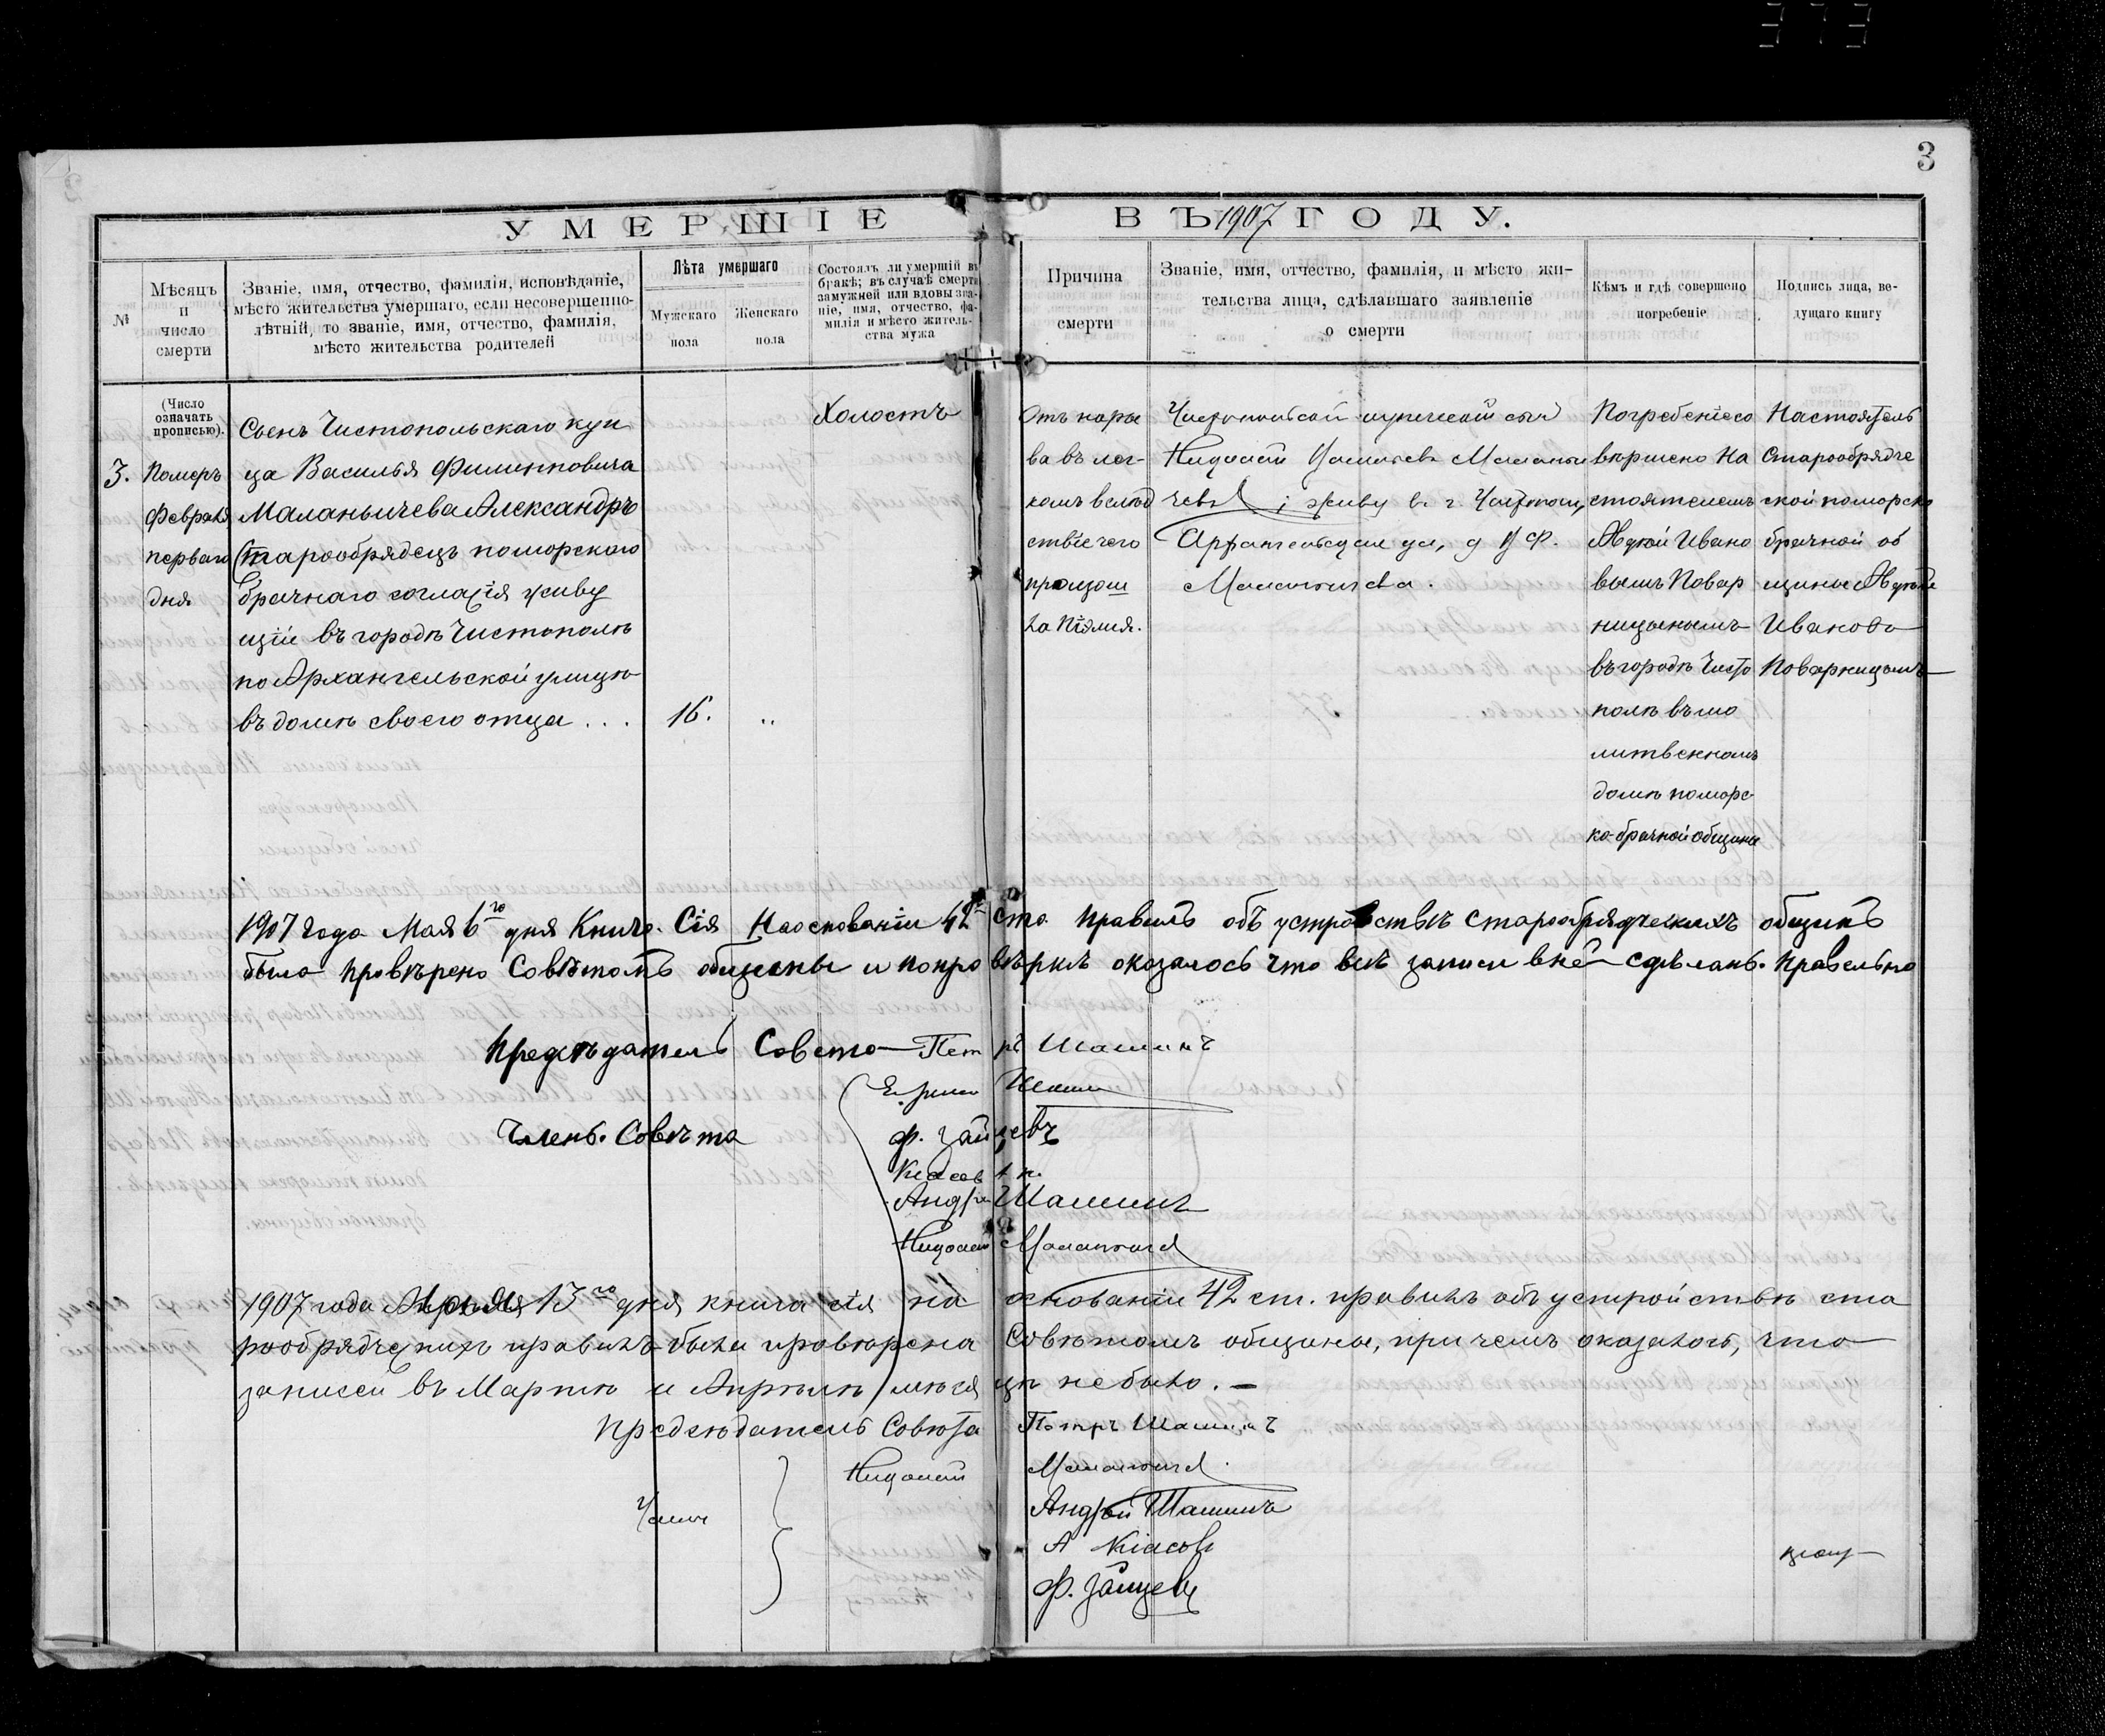 3
УМЕРШІЕ ВЪ 1907 ГОДУ.
№
Мѣсяцъ
и
число
смерти
Званіе, имя, отчество, фамилія, исповѣданіе,
мѣсто жительства умершаго, если несовершенно-
лѣтній, то званіе, имя, отчество, фамилія,
мѣсто жительства родителей
Лѣта умершаго
Мужскаго
пола
Женскаго
пола
Состоялъ ли умершій въ
бракѣ; въ случаѣ смерти
замужней или вдовы зва-
ніе, имя, отчество, фа-
милія и мѣсто житель-
ства мужа
Причина
смерти
Званіе, имя, отчество, фамилія, и мѣсто жи-
тельства лица, сдѣлавшаго заявленіе
о смерти
Кѣмъ и гдѣ совершено
погребеніе
Подпись лица, ве-
дущаго книгу
(Число
означать
прописью).
3.
Померъ
Февраля
перваго
дня
Сынъ Чистопольскаго куп
ца Василья Филипповича
Маланьичева Александръ
Старообрядецъ поморскаго
брачнаго согласія живу
щій въ городѣ Чистополѣ
по Архангельской улицѣ
въ домѣ своего отца . . .
16.
"
Холостъ
Отъ нары
ва въ лег-
комъ вслѣд
ствіе чего
произош
ла
Николай Маланьи
чевъ живу в. г.
Архангельская ул, д В Ф.
Маланьичева.
Погребеніе со
вершено На
стоятелемъ
Авдѣй Ивано
вымъ Повар
ницынымъ
въ городѣ Чисто
полѣ въ мо
литвенномъ
домѣ поморс
ко-брачной общины
Настоятель
Старообрядче
ской поморско
брачной об
щины Авдѣй
Ивановъ
Поварницынъ
1907 года Мая 6го дня Книга Сія На основаніи 42 ста правилъ объ устройствѣ старообрядческихъ общинъ
была провѣрено Совѣтомъ общины и по провѣркѣ оказалось что всѣ записи в ней сдѣланы правельно
Председатель Совета Петръ Шашинъ
Члены Совѣта
Ф. Зайцевъ
Кіасовъ
Андрей Шашинъ
Николай Маланьичев
1907 года Апрѣля 13го дня книга сія на основаніи 42 ст. правилъ объ устройствѣ ста
рообрядческихъ правилъ была провѣрена Совѣтомъ общины, при чемъ оказалось, что
записей въ Мартѣ и Апрѣлѣ мѣсяцѣ не было. —
Предсѣдатель Совѣта Петръ Шашинъ
Николай Маланьичев
Члены
Андрей Шашинъ
А Кіасовъ
Ф. Зайцевъ